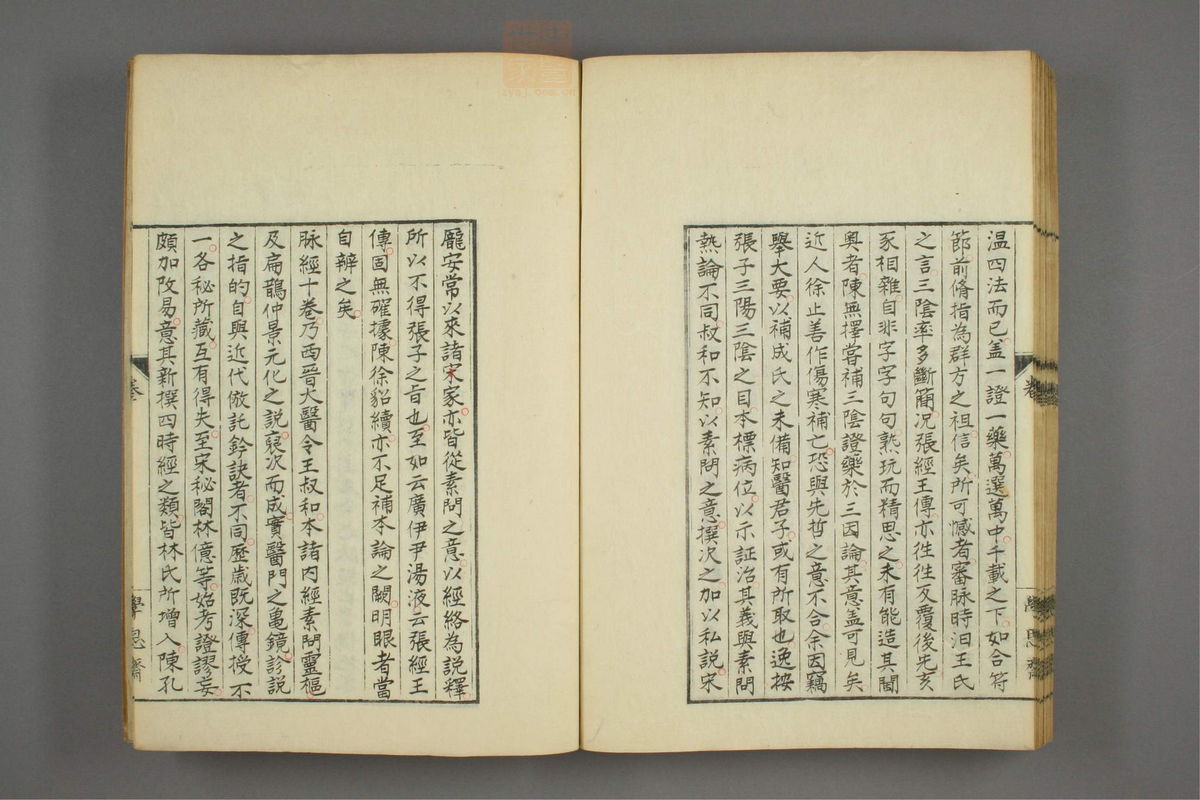 温四法而已盖一證一藥萬選萬中千載之下如合符
節前脩指為群方之祖信矣所可憾者審脉時汩王氏
之言三陰率多斷簡况張經王傳亦徃徃反覆後先亥
豕相雜自非字字句句熟玩而精思之未有能造其閫
奥者陳無擇嘗補三陰證藥於三因論其意盖可見矣
近人徐止善作傷寒補亡恐與先哲之意不合余因竊
舉大要以補成氏之未備知醫君子或有所取也逸按
張子三陽三陰之目本標病位以示証治其義與素問
熱論不同叔和不知以素問之意撰次之加以私説宋
龐安常以來諸宋家亦皆從素問之意以經絡為説釋
所以不得張子之旨也至如云廣伊尹湯液云張經王
傳固無確據陳徐貂續亦不足補本論之闕明眼者當
自辨之矣
脉經十巻乃西晉大醫令王叔和本諸内經素問靈樞
及扁鵲仲景元化之説裒次而成實醫門之亀鏡診説
之指的自與近代倣託鈐訣者不同歴歳既深傳授不
一各秘所藏互有得失至宋秘閣林億等始考證謬妄
頗加改易意其新撰四時經之類皆林氏所增入陳孔
學思齋